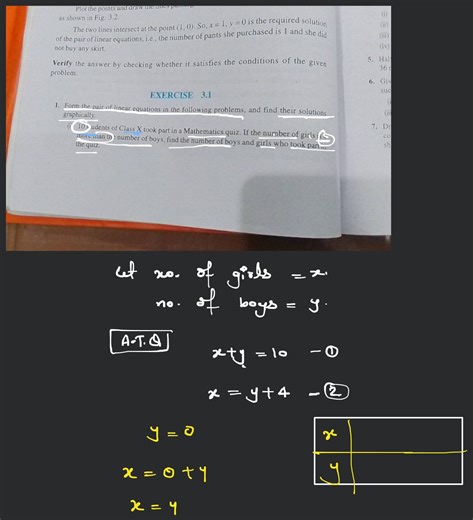 Plot the points and draw the lines
as shown in Fig. 3.2.
The two lines intersect at the point (1, 0). So, x = 1, y = 0 is the required solution
of the pair of linear equations, i.e., the number of pants she purchased is 1 and she did
not buy any skirt.
Verify the answer by checking whether it satisfies the conditions of the given
problem.
EXERCISE 3.1
1. Form the pair of linear equations in the following problems, and find their solutions
graphically.
10 students of Class X took part in a Mathematics quiz. If the number of girls is
more than the number of boys, find the number of boys and girls who took part
the quiz.
(i)
(ii)
(iii)
(iv)
5. Hal
36
6. Giv
(i)
7. Dr
co
Let no. of girls = x.
no. of boys = y.
A.T.Q
x+y = 10 - ①
x = y+4 - ②
y = 0
x = 0+4
x = 4
x
y